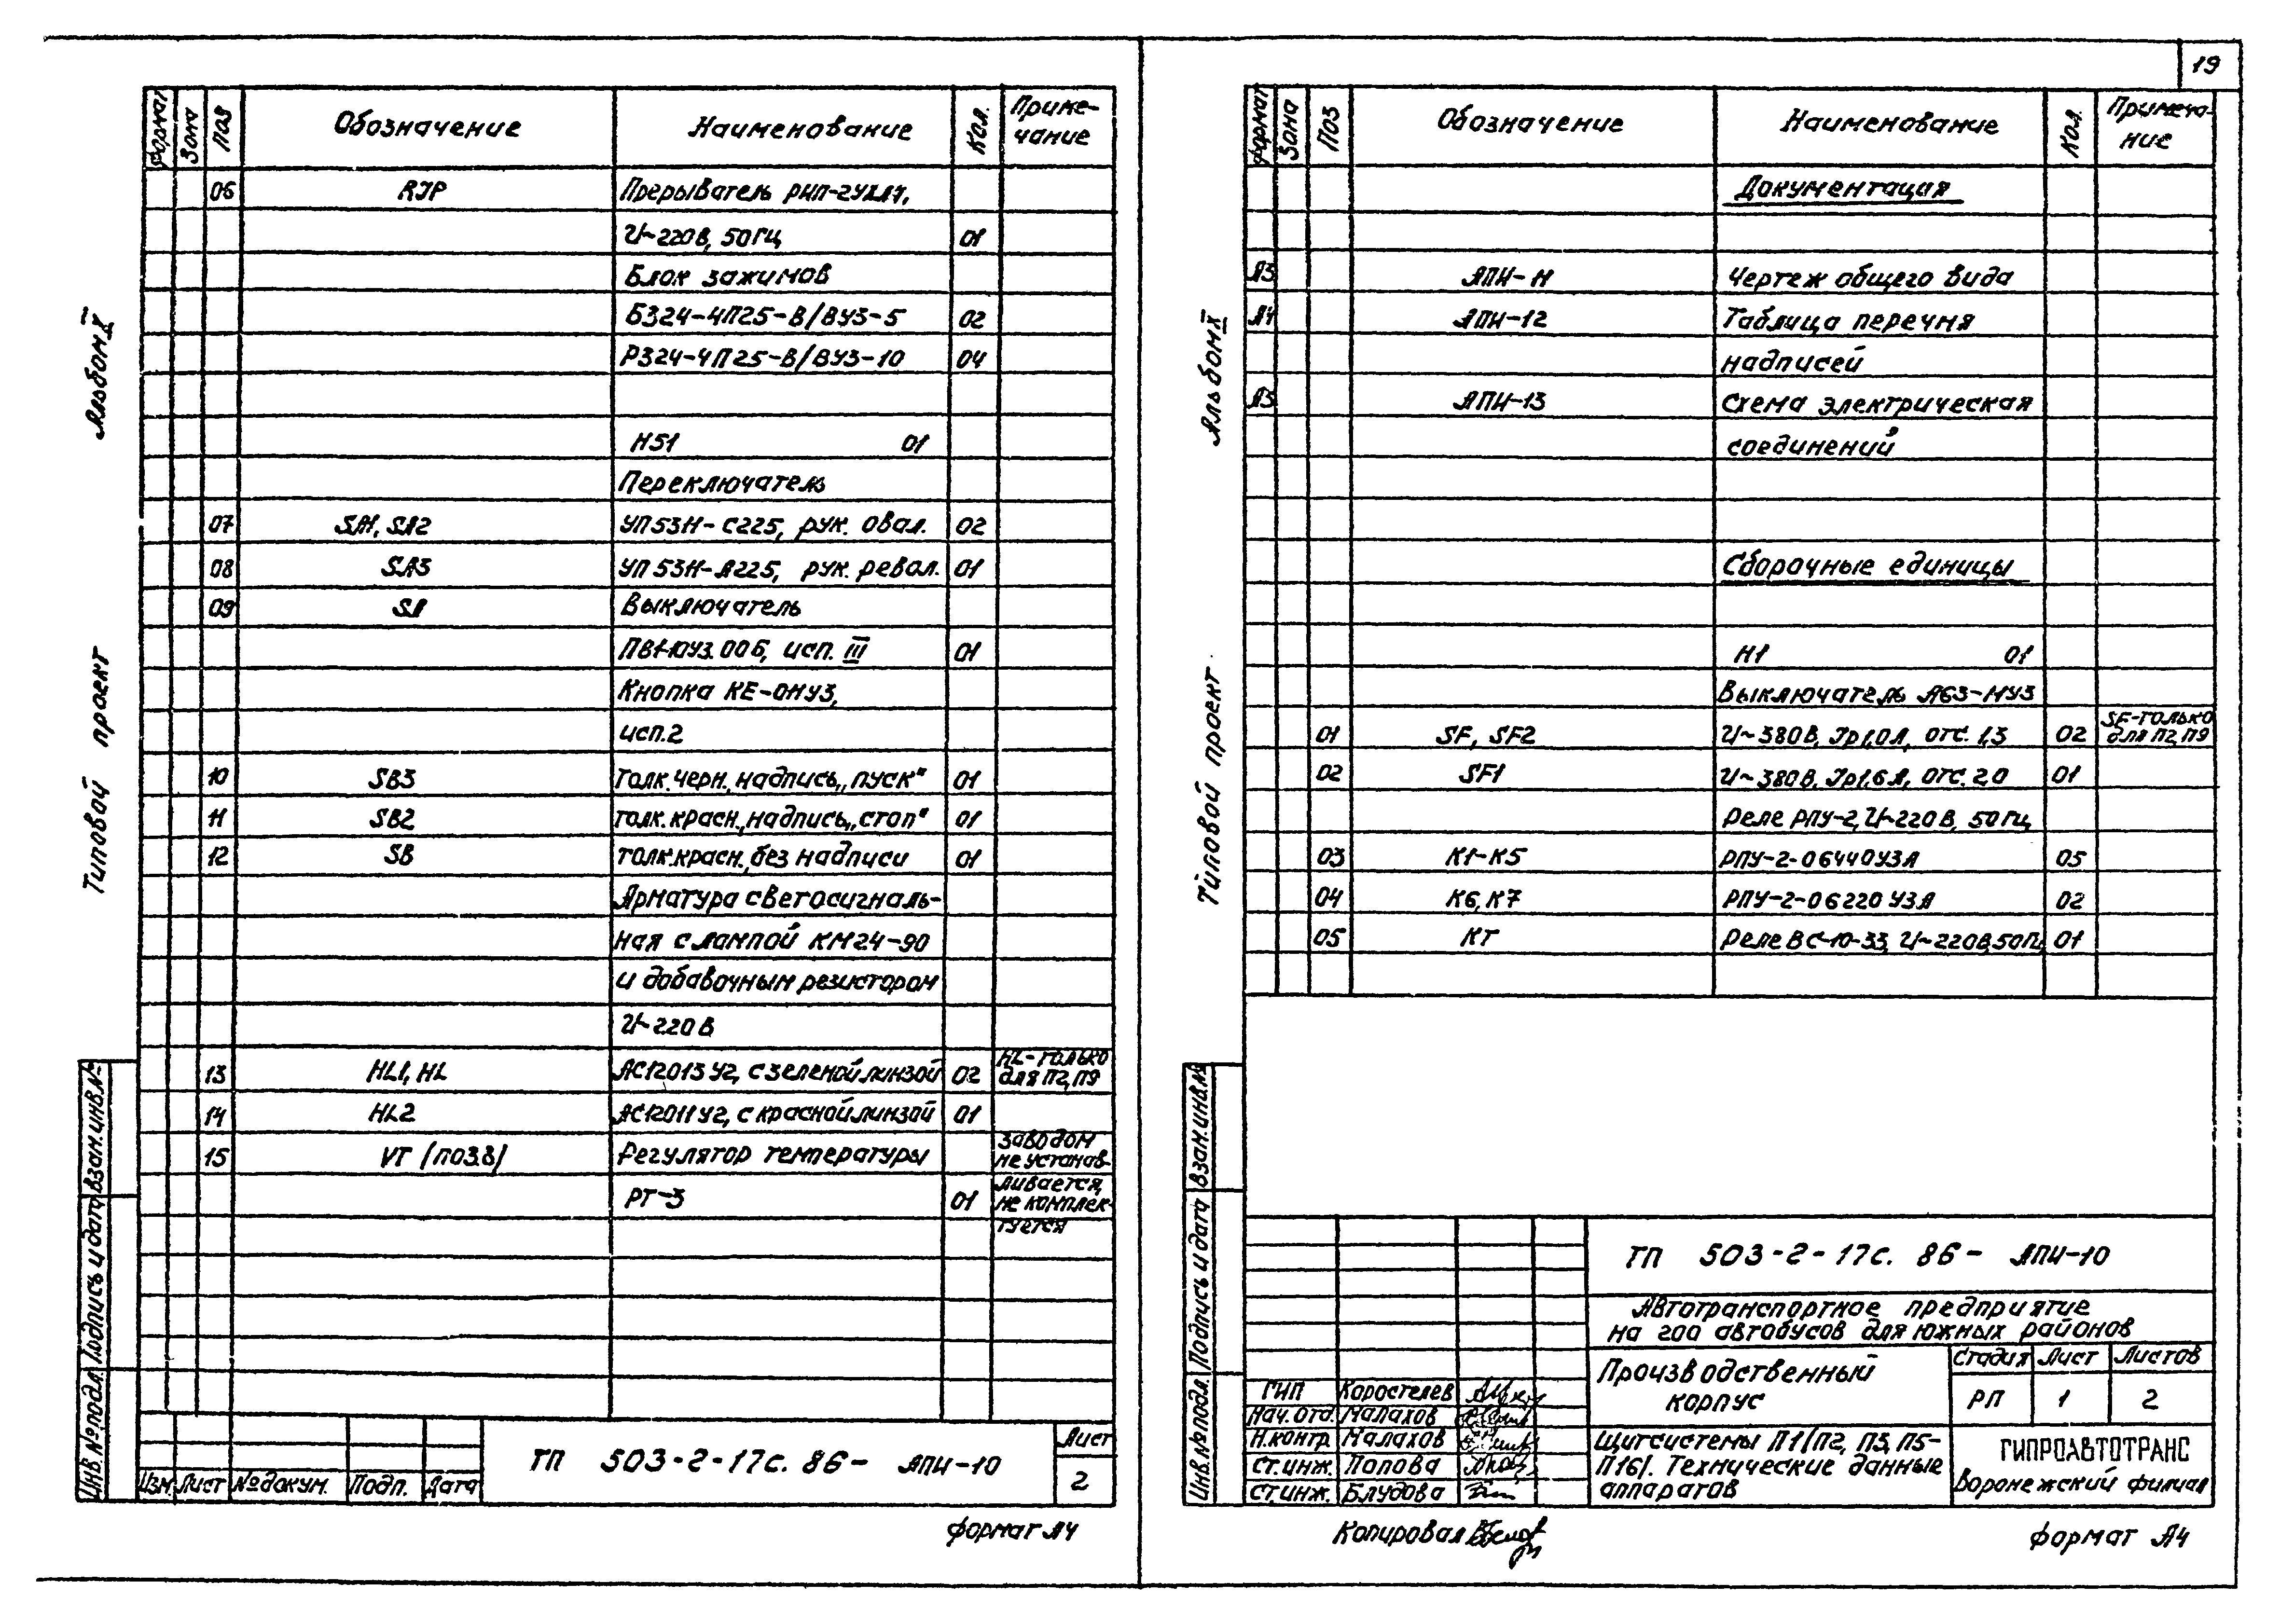 19
Альбом X
Типовой проект
Формат Зона Поз Обозначение Наименование Кол. Приме-
чание
06 RJP Прерыватель РИП-2УХЛ4,
U~220В, 50Гц 01
Блок зажимов
Б324-4П25-В/ВУ3-5 02
Р324-4П25-В/ВУ3-10 04
Н51 01
Переключатель
07 SA1, SA2 УП5311-С225, рук. овал. 02
08 SA3 УП5311-А225, рук. револ. 01
09 SA Выключатель
ПВ1-10У3.00Б, исп. III 01
Кнопка КЕ-011У3,
исп.2
10 SB3 толк. черн., надпись „пуск" 01
11 SB2 толк. красн., надпись „стоп" 01
12 SB толк. красн., без надписи 01
Арматура светосигналь-
ная с лампой КМ24-90
и добавочным резистором
U~220В
13 HL1, HL АС12013У2, с зеленой линзой 02 HL-только
для П2, П9
14 HL2 АС12011У2, с красной линзой 01
15 VT /поз.8/ Регулятор температуры заводом
не устанав-
РТ-3 01 ливается,
не комплек-
туется
Взам. инв. №
Подпись и дата
Инв. № подл.
Изм. Лист № докум. Подп. Дата
ТП 503-2-17с. 86- АПИ-10
Лист
2
Формат А4
Альбом X
Типовой проект
Формат Зона Поз Обозначение Наименование Кол. Примеча-
ние
Документация
А3 АПИ-11 Чертеж общего вида
А4 АПИ-12 Таблица перечня
надписей
А3 АПИ-13 Схема электрическая
соединений
Сборочные единицы
Н1 01
Выключатель А63-МУ3
01 SF, SF2 U~380В, Jр1,0А, отс. 1,3 02 SF-только
для П2, П9
02 SF1 U~380В, Jр1,6А, отс. 2,0 01
Реле РПУ-2, U~220В, 50Гц
03 К1-К5 РПУ-2-06440У3А 05
04 К6, К7 РПУ-2-06220У3А 02
05 КТ Реле ВС-10-33, U~220В, 50Гц 01
Взам. инв. №
Подпись и дата
Инв. № подл.
ТП 503-2-17с. 86- АПИ-10
Автотранспортное предприятие
на 200 автобусов для южных районов
Производственный
корпус
Стадия Лист Листов
РП 1 2
ГИП Коростелев
Нач. отд. Малахов
Н.контр. Малахов
Ст.инж. Попова
Ст.инж. Блудова
Щит системы П1/П2, П3, П5-
П16/. Технические данные
аппаратов
ГИПРОАВТОТРАНС
Воронежский филиал
Копировал
Формат А4